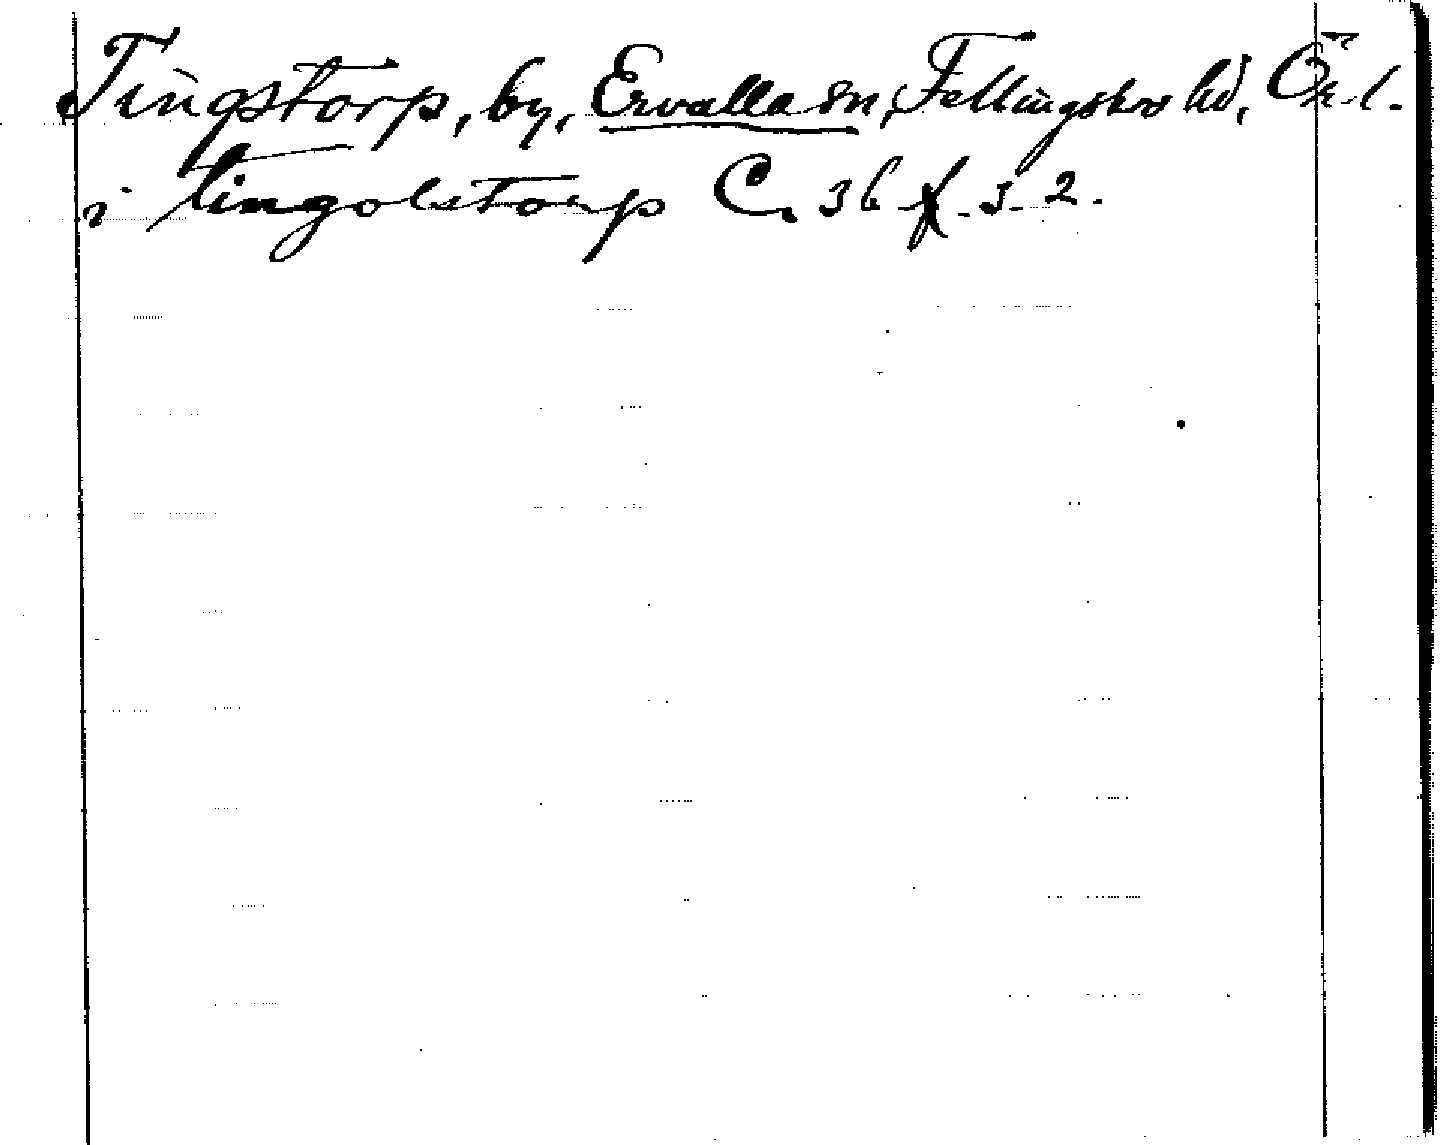 Tingstorp, by, Ervalla sn, Fellingsbro hd, Ör. l.
i tingolstorp C. 36 f. 32.